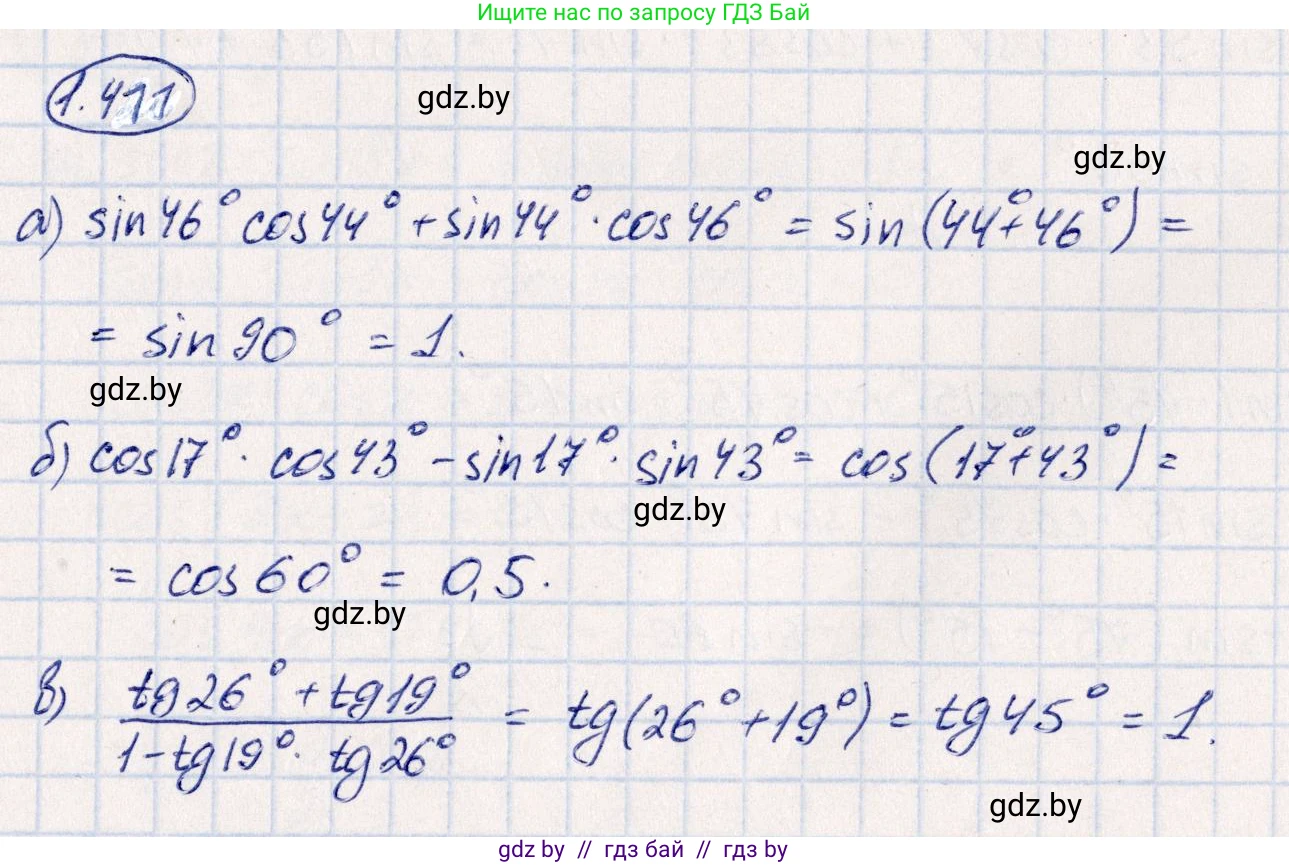 Ищите нас по запросу ГДЗ Бай
1.411
gdz.by
gdz.by
а) sin46° cos44° + sin44° · cos46° = sin(44°+46°) =
= sin90° = 1.
gdz.by
б) cos17° · cos43° - sin17° · sin43° = cos(17°+43°) =
gdz.by
= cos60° = 0,5.
gdz.by
в) (tg26° + tg19°)/(1 - tg19° · tg26°) = tg(26° + 19°) = tg45° = 1.
gdz.by
gdz by // гдз бай // гдз by